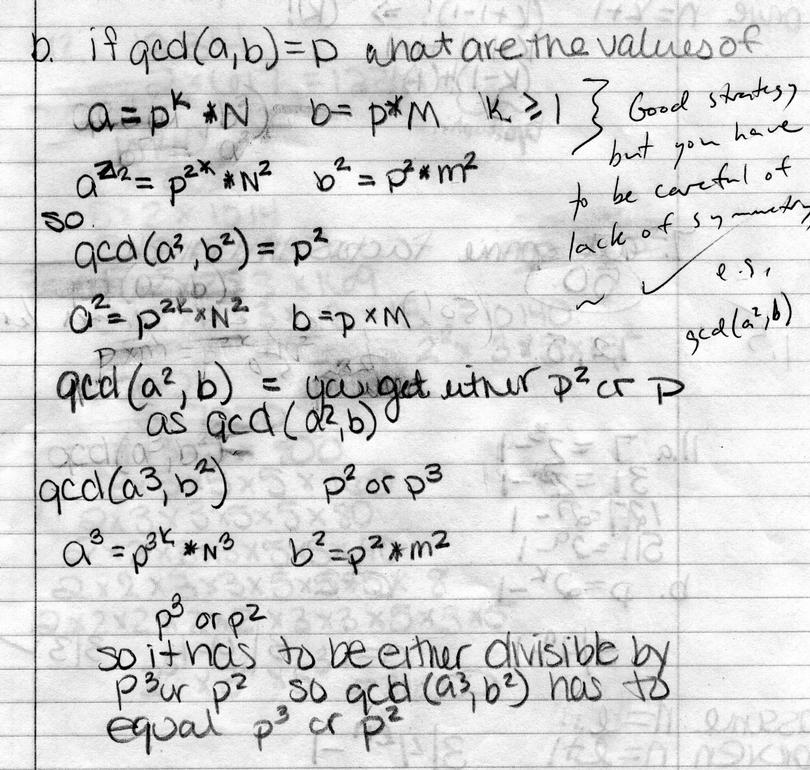 b. if gcd(a,b)=p what are the values of
a=p^k *N b= p*M k ≥ 1 } Good strategy
but you have
a^2 = p^2k *N^2 b^2 = p^2*m^2
to be careful of
so
lack of symmetry
gcd(a^2, b^2) = p^2
e.g.
~ ✓
a^2= p^2k ×N^2 b=p×M
gcd(a^2, b)
gcd(a^2, b) = you get either p^2 or p
as gcd(a^2,b)
gcd(a^3, b^2) p^2 or p^3
a^3=p^3k *N^3 b^2=p^2*m^2
p^3 or p^2
so it has to be either divisible by
p^3 or p^2 so gcd(a^3,b^2) has to
equal p^3 or p^2